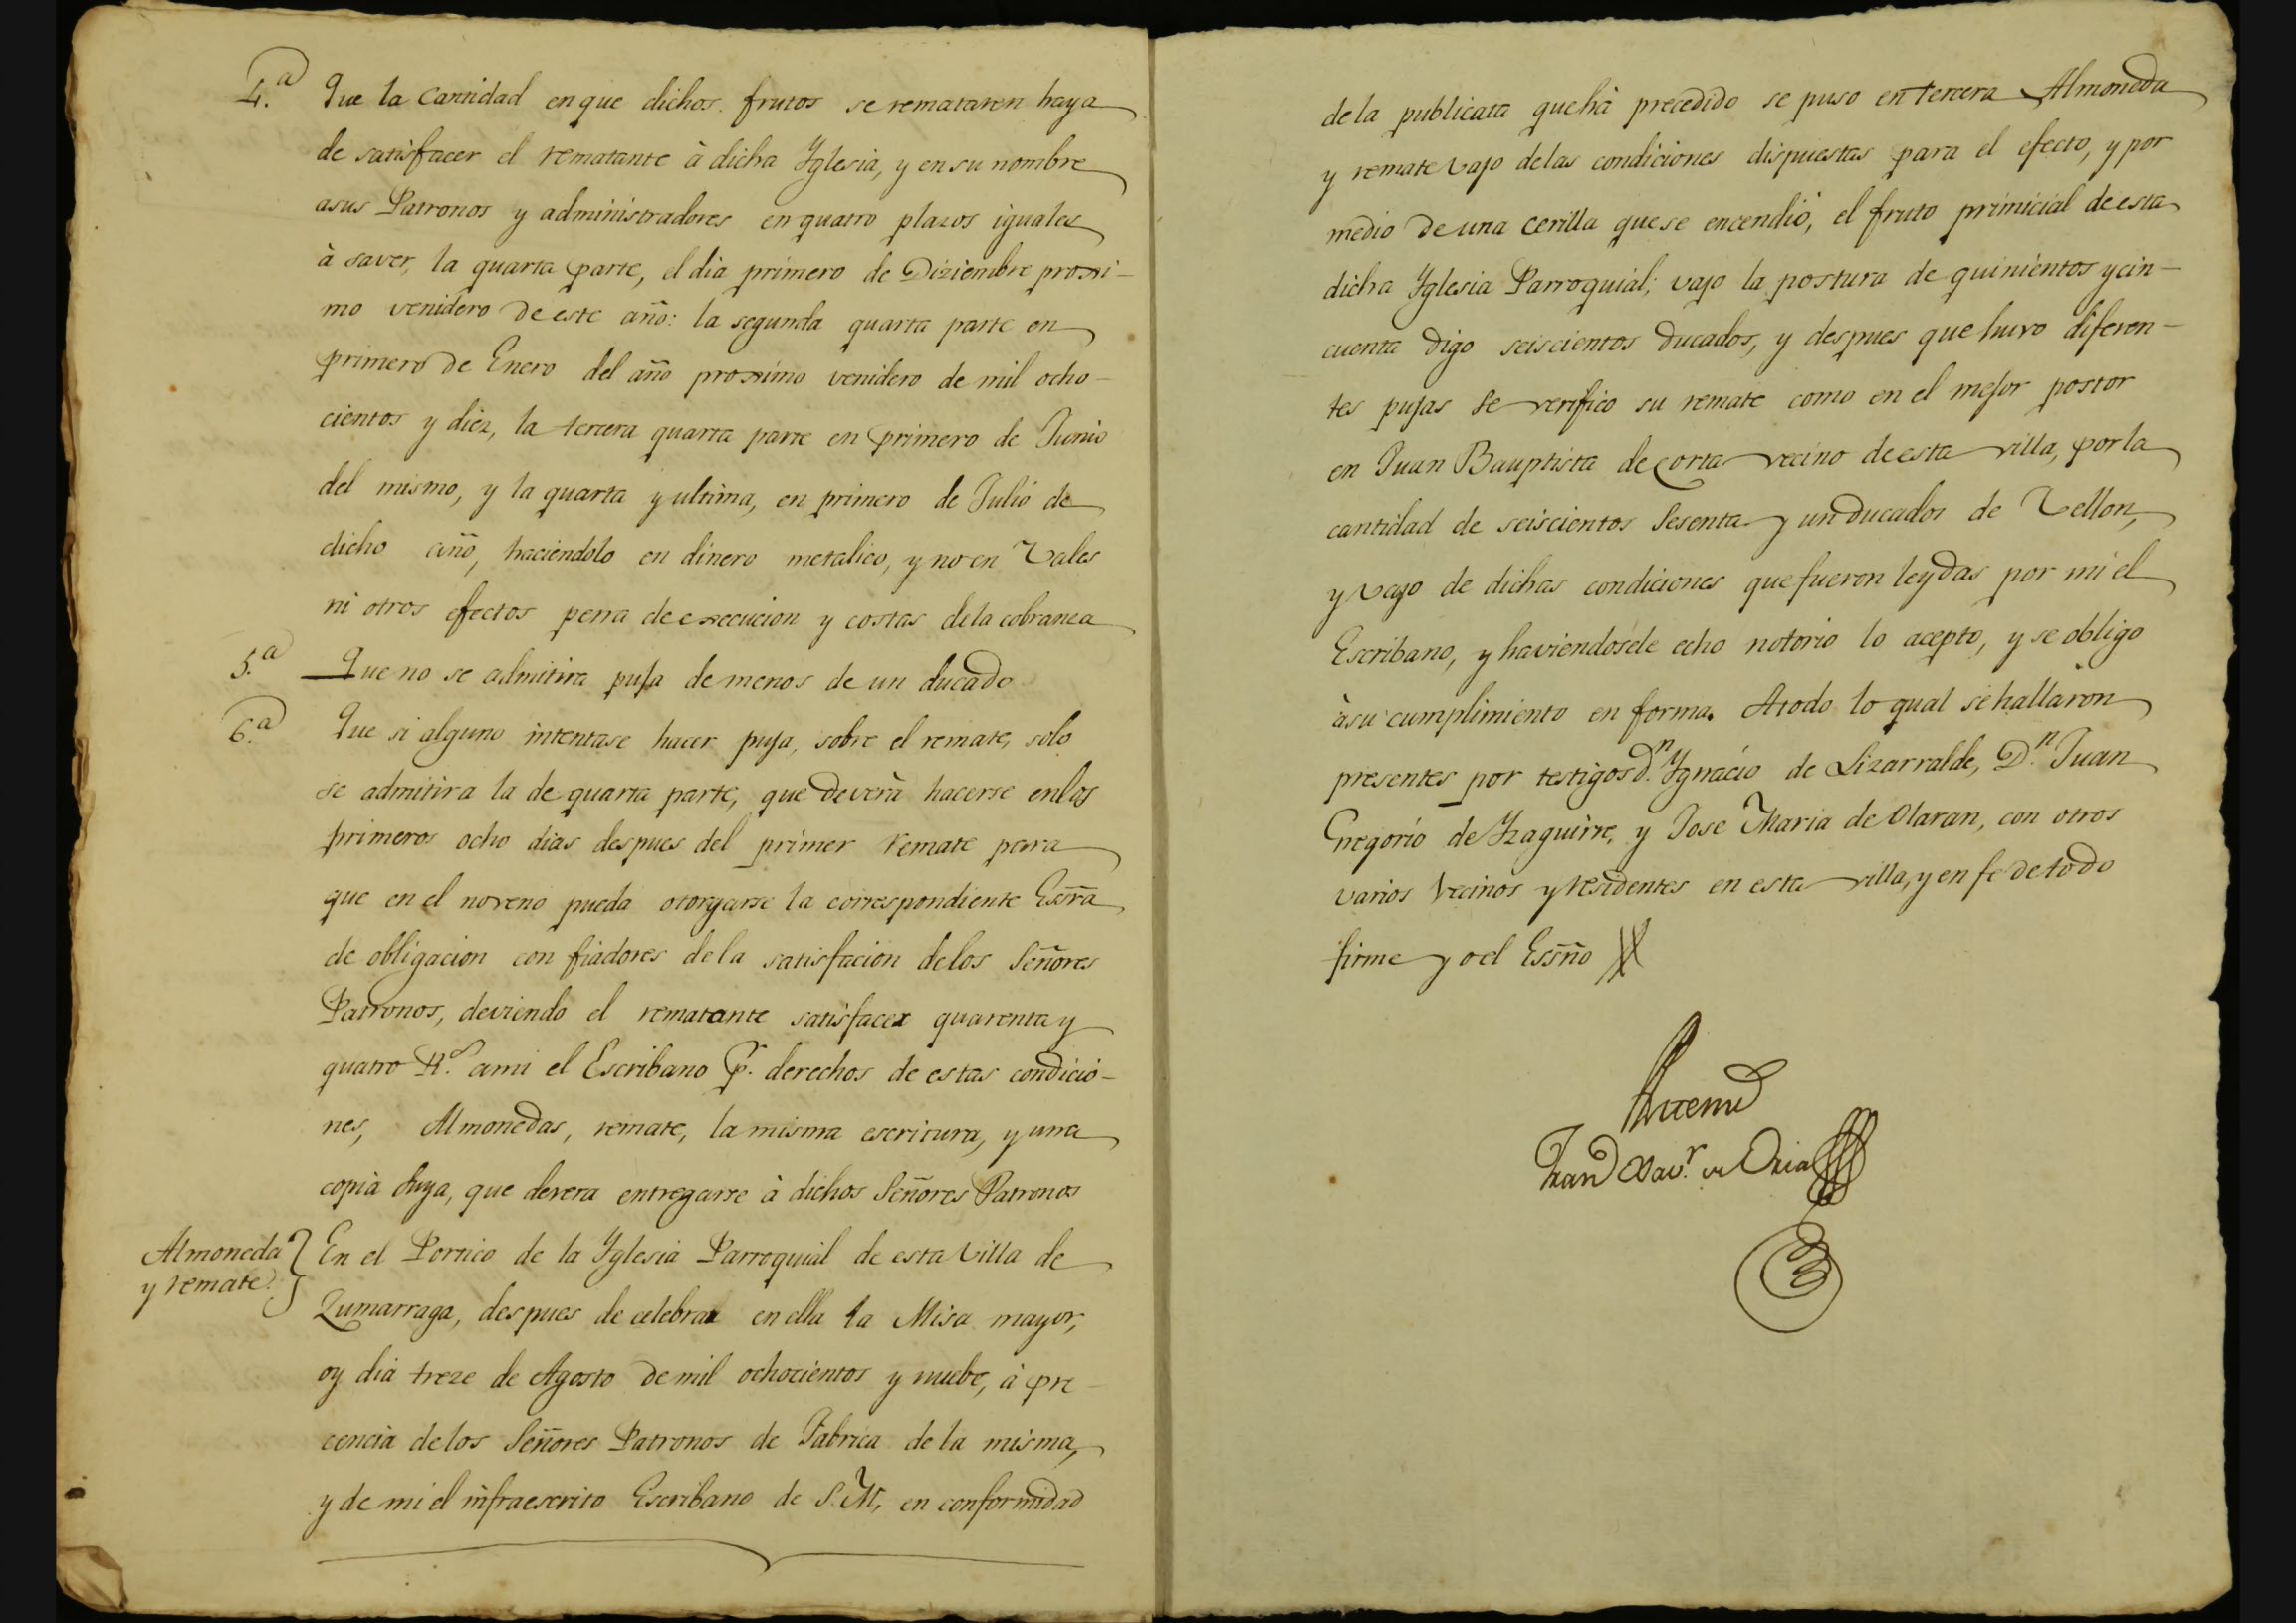 4.a Que la Cantidad en que dichos frutos se remataren haya
de satisfacer el rematante à dicha Yglesia, y en su nombre
asus Patronos y administradores en quatro plazos iguales
à saver, la quarta parte, el dia primero de Diziembre proxi-
mo venidero de este año: la segunda quarta parte en
primero de Enero del año proximo venidero de mil ocho-
cientos y diez, la tercera quarta parte en primero de Junio
del mismo, y la quarta y ultima, en primero de Julio de
dicho año, haciendolo en dinero metalico, y no en Vales
ni otros efectos pena de execucion y costas dela cobranza
5.a Que no se admitira puja de menos de un ducado
6.a Que si alguno intentase hacer puja, sobre el remate, solo
se admitira la de quarta parte, que deverà hacerse enlos
primeros ocho dias despues del primer remate para
que en el noveno pueda otorgarse la correspondiente Essra
de obligacion con fiadores dela satisfacion delos Señores
Patronos, deviendo el rematante satisfacer quarenta y
quatro Rs. ami el Escribano Pr. derechos de estas condicio-
nes, Almonedas, remate, la misma escritura, y una
copia suya, que devera entregarse à dichos Señores Patronos
Almoneda
y remate.
En el Portico de la Yglesia Parroquial de esta Villa de
Zumarraga, despues de celebrar en ella la Misa mayor,
oy dia treze de Agosto de mil ochocientos y nuebe, à pre-
cencia delos Señores Patronos de Fabrica de la misma,
y de mi el infraescrito Escribano de S.M, en conformidad
dela publicata que hà precedido se puso en tercera Almoneda
y remate vajo delas condiciones dispuestas para el efecto, y por
medio de una cerilla que se encendio, el fruto primicial de esta
dicha Yglesia Parroquial; vajo la postura de quinientos ycin-
cuenta digo seiscientos ducados, y despues que huvo diferen-
tes pujas se verifico su remate como en el mejor postor
en Juan Bauptista de corta vecino de esta villa, por la
cantidad de seiscientos sesenta y un ducados de Vellon,
y vajo de dichas condiciones que fueron leydas por mi el
Escribano, y haviendosele echo notorio lo acepto, y se obligo
àsu cumplimiento en forma. Atodo lo qual se hallaron
presentes por testigos d.n Ygnacio de Lizarralde, D.n Juan
Gregorio de Yzaguirre, y Jose Maria de Olaran, con otros
varios vecinos y residentes en esta villa, y en fe de todo
firme yo el Essño
Antemi
Fran.co Xav.r de Oria